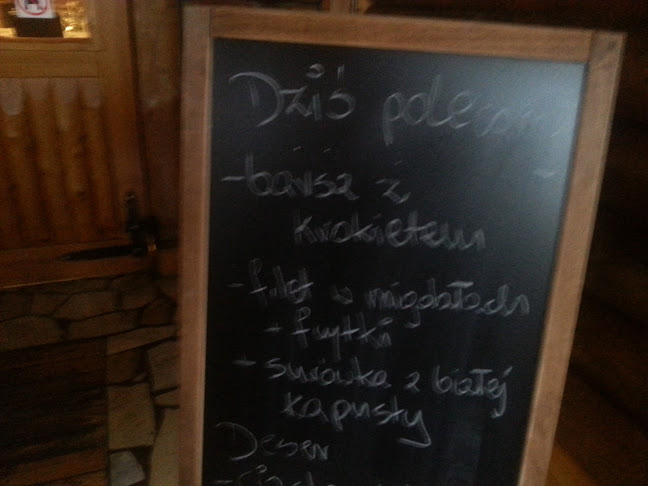 Dziś polecamy
- barsz z
krokietem
- filet w migdałach
+ frytki
+ surówka z białej
kapusty
Deser